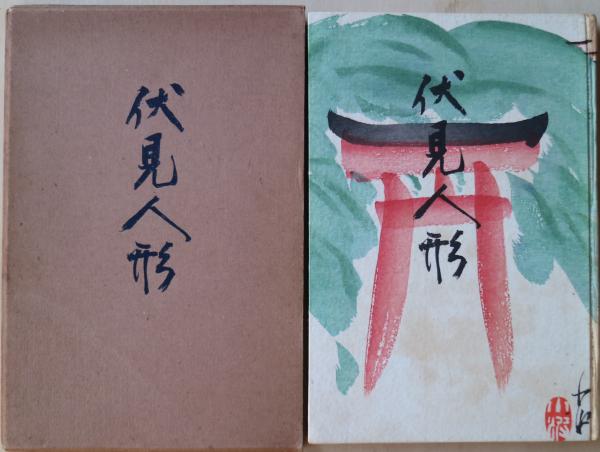 伏見人形
伏見人形